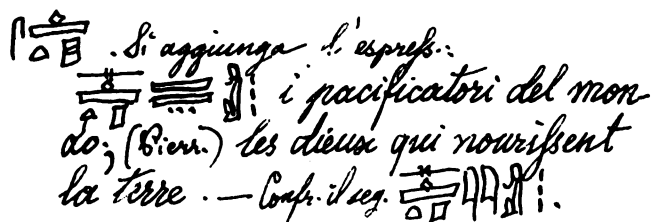 . Si aggiunga l'espress.:
i pacificatori del mon-
do; (Pierr.) les dieux qui nourissent
la terre. — Confr. il seg. .